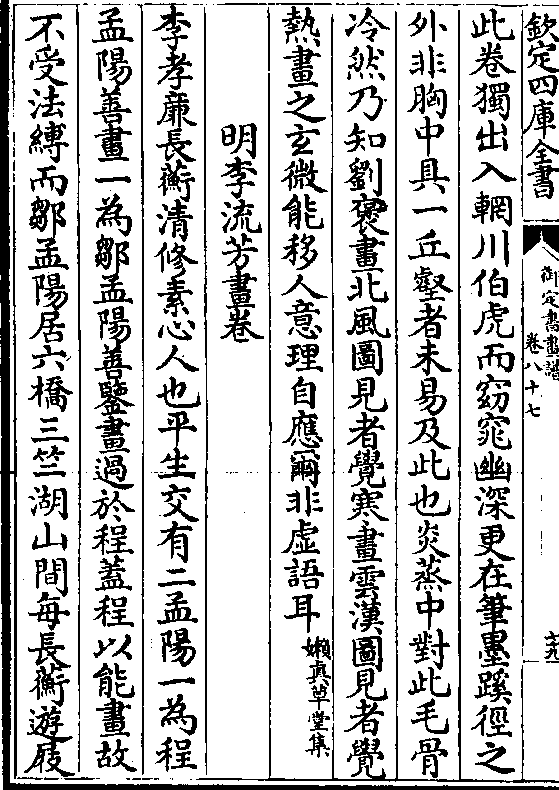 欽定四庫全書
御定書畫譜
卷八十七
十九
此卷獨出入輞川伯虎而窈窕幽深更在筆墨蹊徑之
外非胸中具一丘壑者未易及此也炎蒸中對此毛骨
冷然乃知劉褒畫北風圖見者覺寒畫雲漢圖見者覺
熱畫之玄微能移人意理自應爾非虛語耳
嬾真草堂集
明李流芳畫卷
李孝廉長蘅清修素心人也平生交有二孟陽一為程
孟陽善畫一為鄒孟陽善鑒畫過於程蓋程以能畫故
不受法縛而鄒孟陽居六橋三竺湖山間每長蘅遊屐